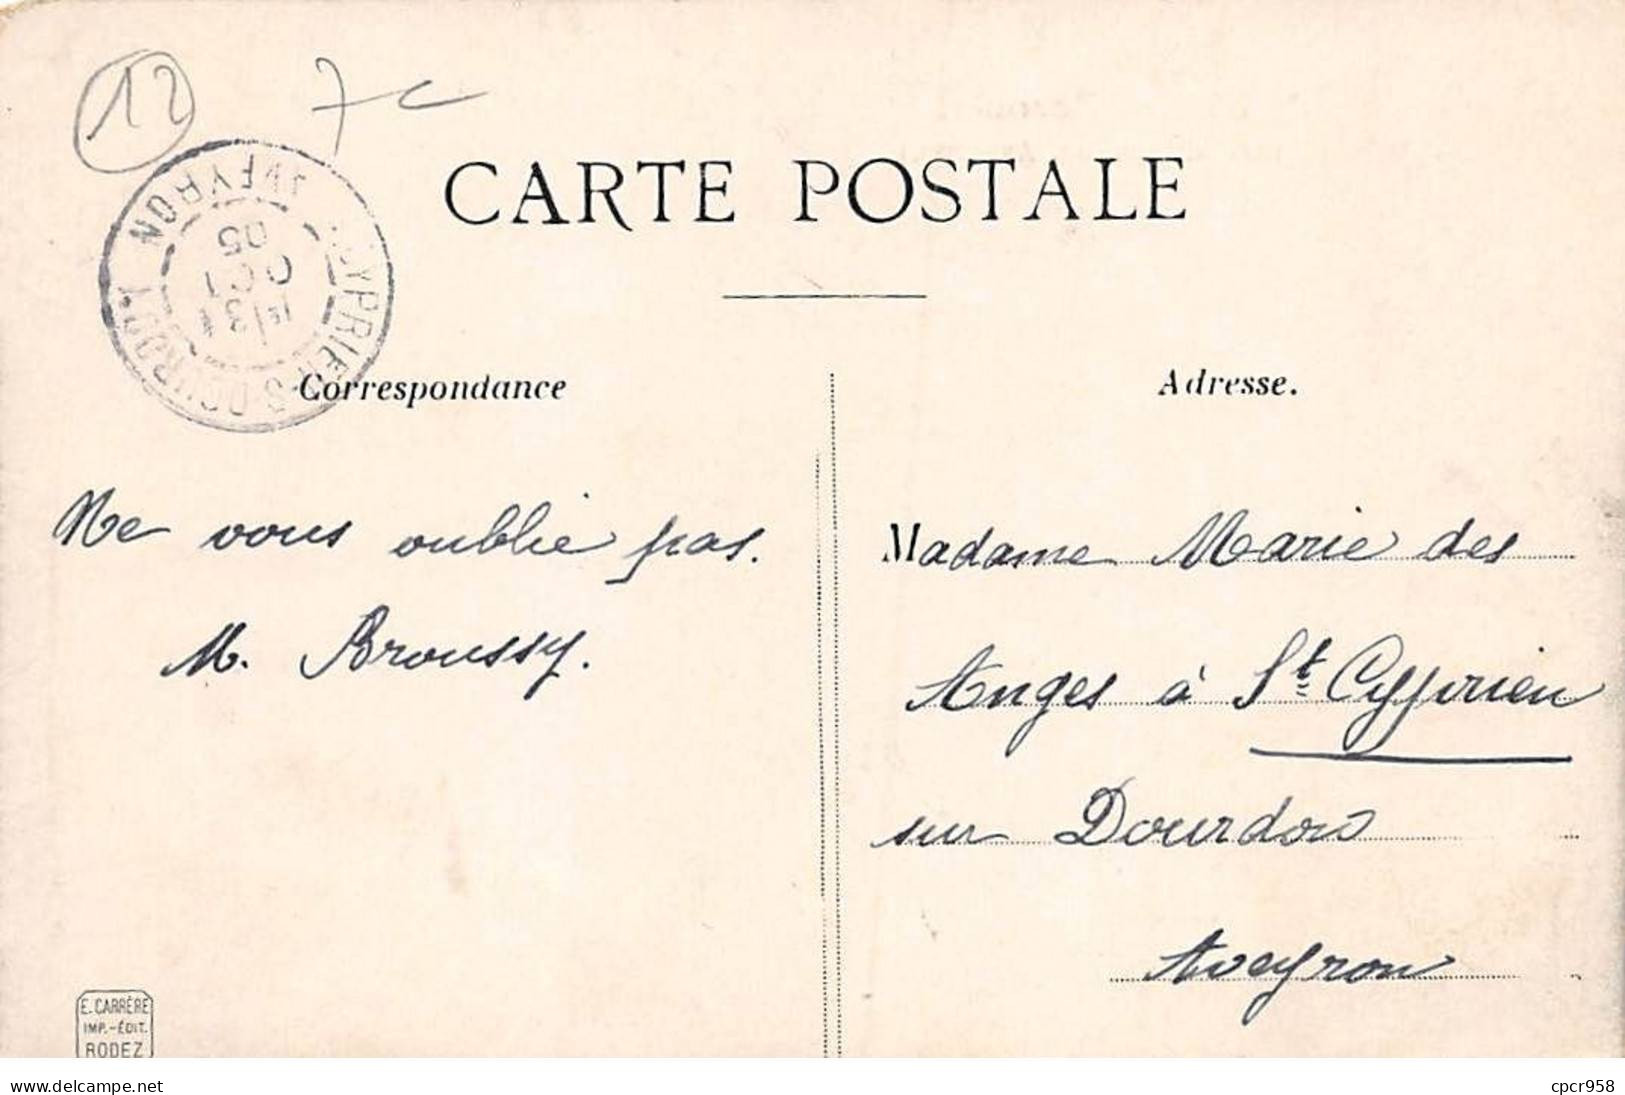 12 7c
CARTE POSTALE
AVEYRON
OCT
05
Correspondance
Adresse.
Ne vous oublie pas.
M. Broussy.
Madame Marie des
Anges à St Cyprien
sur Dourdou
Aveyron
E. CARRÈRE
IMP.-ÉDIT.
RODEZ
www.delcampe.net
cpcr958